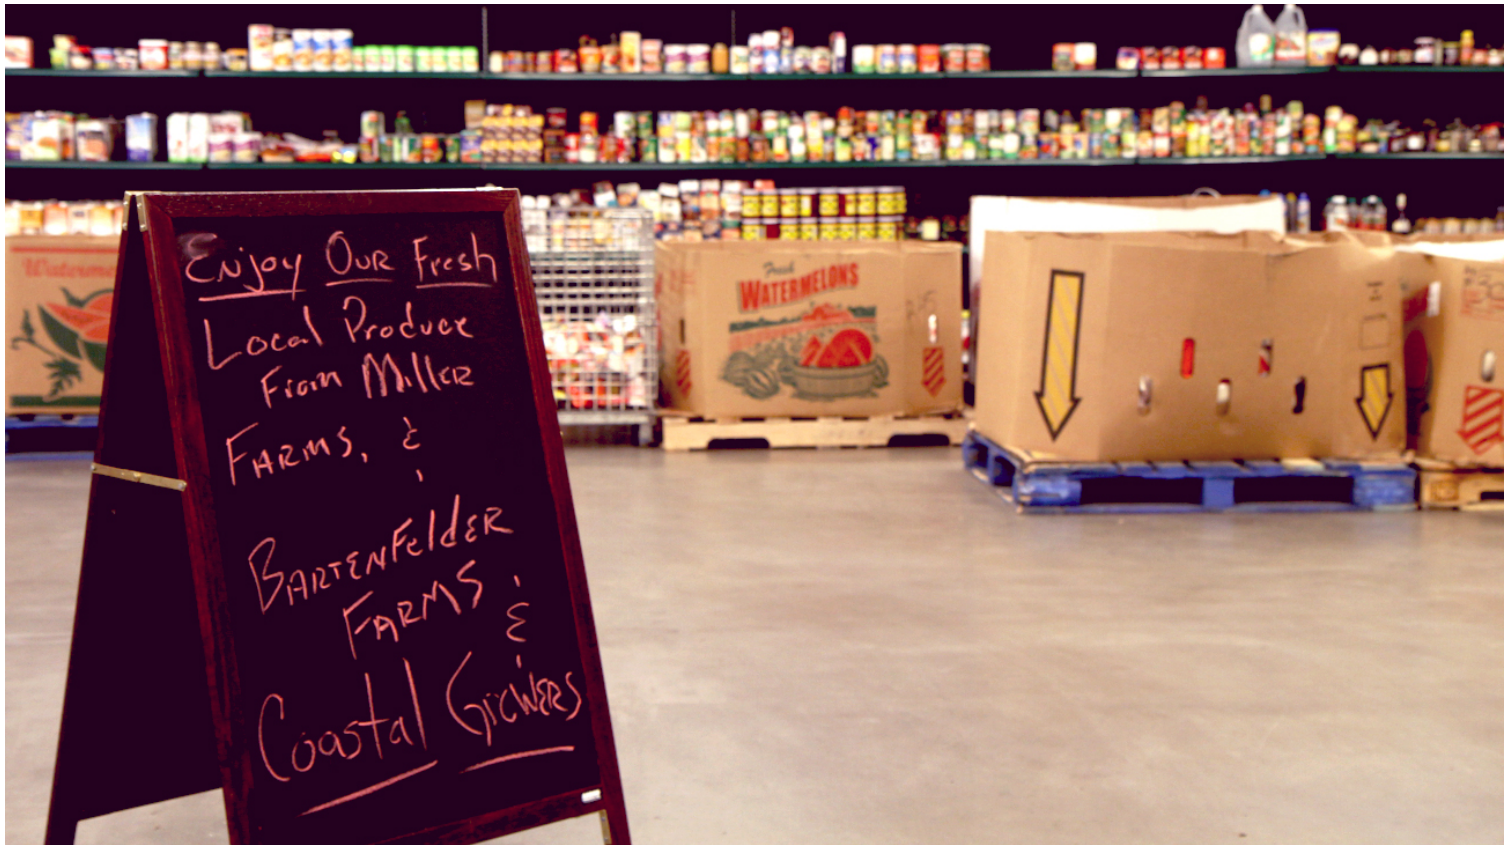 Enjoy Our Fresh
Local Produce
From Miller
Farms, &
Bartenfelder
Farms, &
Coastal Growers
Fresh
WATERMELONS